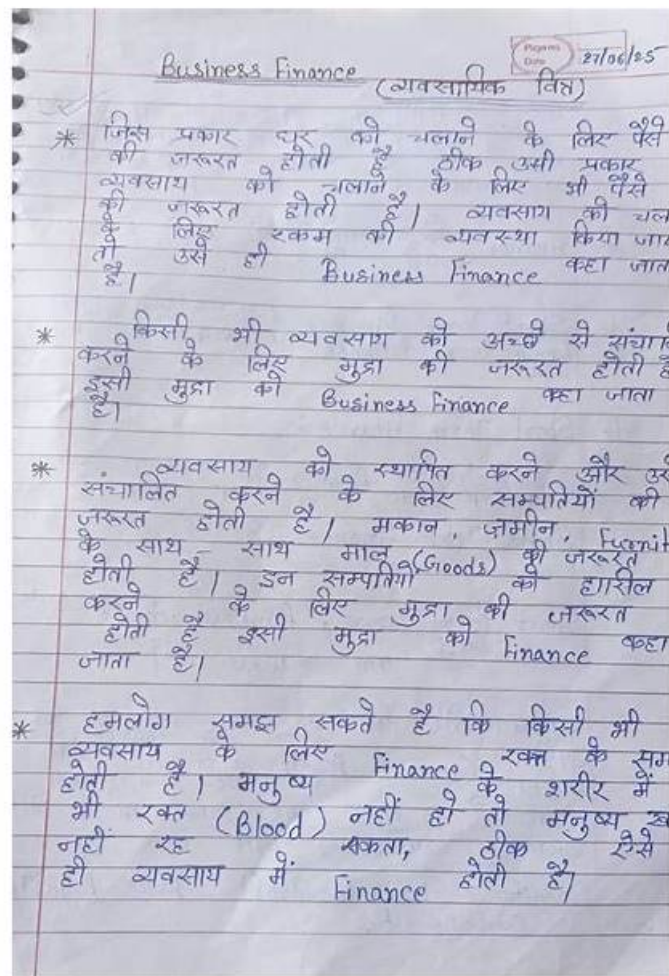 Date 27/06/25
Business Finance (व्यवसायिक वित्त)
* जिस प्रकार घर को चलाने के लिए पैसे
की जरूरत होती है ठीक उसी प्रकार
व्यवसाय को चलाने के लिए भी पैसे
की जरूरत होती है। व्यवसाय को चल
के लिए रकम की व्यवस्था किया जा
तो उसे ही Business Finance कहा जात
है।
* किसी भी व्यवसाय को अच्छे से संचालि
करने के लिए मुद्रा की जरूरत होती है
इसी मुद्रा को Business Finance कहा जाता
है।
* व्यवसाय को स्थापित करने और उसे
संचालित करने के लिए सम्पतियों की
जरूरत होती है। मकान, जमीन, Furnit
के साथ-साथ माल (Goods) की जरूरत
होती है। इन सम्पतियों को हासिल
करने के लिए मुद्रा की जरूरत
होती है इसी मुद्रा को Finance कहा
जाता है।
* हमलोग समझ सकते है कि किसी भी
व्यवसाय के लिए Finance रक्त के सम
होती है। मनुष्य के शरीर में
भी रक्त (Blood) नहीं हो तो मनुष्य
नहीं रह सकता, ठीक ऐसे
ही व्यवसाय में Finance होती है।